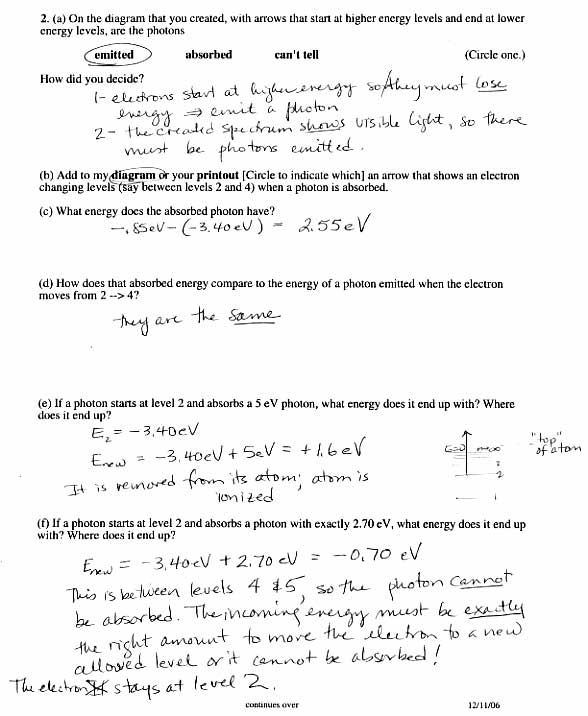 2. (a) On the diagram that you created, with arrows that start at higher energy levels and end at lower
energy levels, are the photons
emitted absorbed can't tell (Circle one.)
How did you decide?
1- electrons start at higher energy so they must lose
energy ⇒ emit a photon
2- the created spectrum shows visible light, so there
must be photons emitted.
(b) Add to my diagram or your printout [Circle to indicate which] an arrow that shows an electron
changing levels (say between levels 2 and 4) when a photon is absorbed.
(c) What energy does the absorbed photon have?
-.85eV - (-3.40eV) = 2.55eV
(d) How does that absorbed energy compare to the energy of a photon emitted when the electron
moves from 2 --> 4?
They are the same
(e) If a photon starts at level 2 and absorbs a 5 eV photon, what energy does it end up with? Where
does it end up?
E₂ = -3.40eV
Enew = -3.40eV + 5eV = +1.6eV
It is removed from its atom; atom is
ionized
E=0 n=∞ "top"
of atom
3
2
1
(f) If a photon starts at level 2 and absorbs a photon with exactly 2.70 eV, what energy does it end up
with? Where does it end up?
Enew = -3.40eV + 2.70 eV = -0.70 eV
This is between levels 4 & 5, so the photon cannot
be absorbed. The incoming energy must be exactly
the right amount to move the electron to a new
allowed level or it cannot be absorbed!
The electron stays at level 2.
continues over 12/11/06